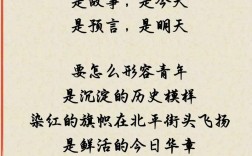 是故事，是今天
是预言，是明天
要怎么形容青年
是沉淀的历史模样
染红的旗帜在北平街头飞扬
是鲜活的今日华章